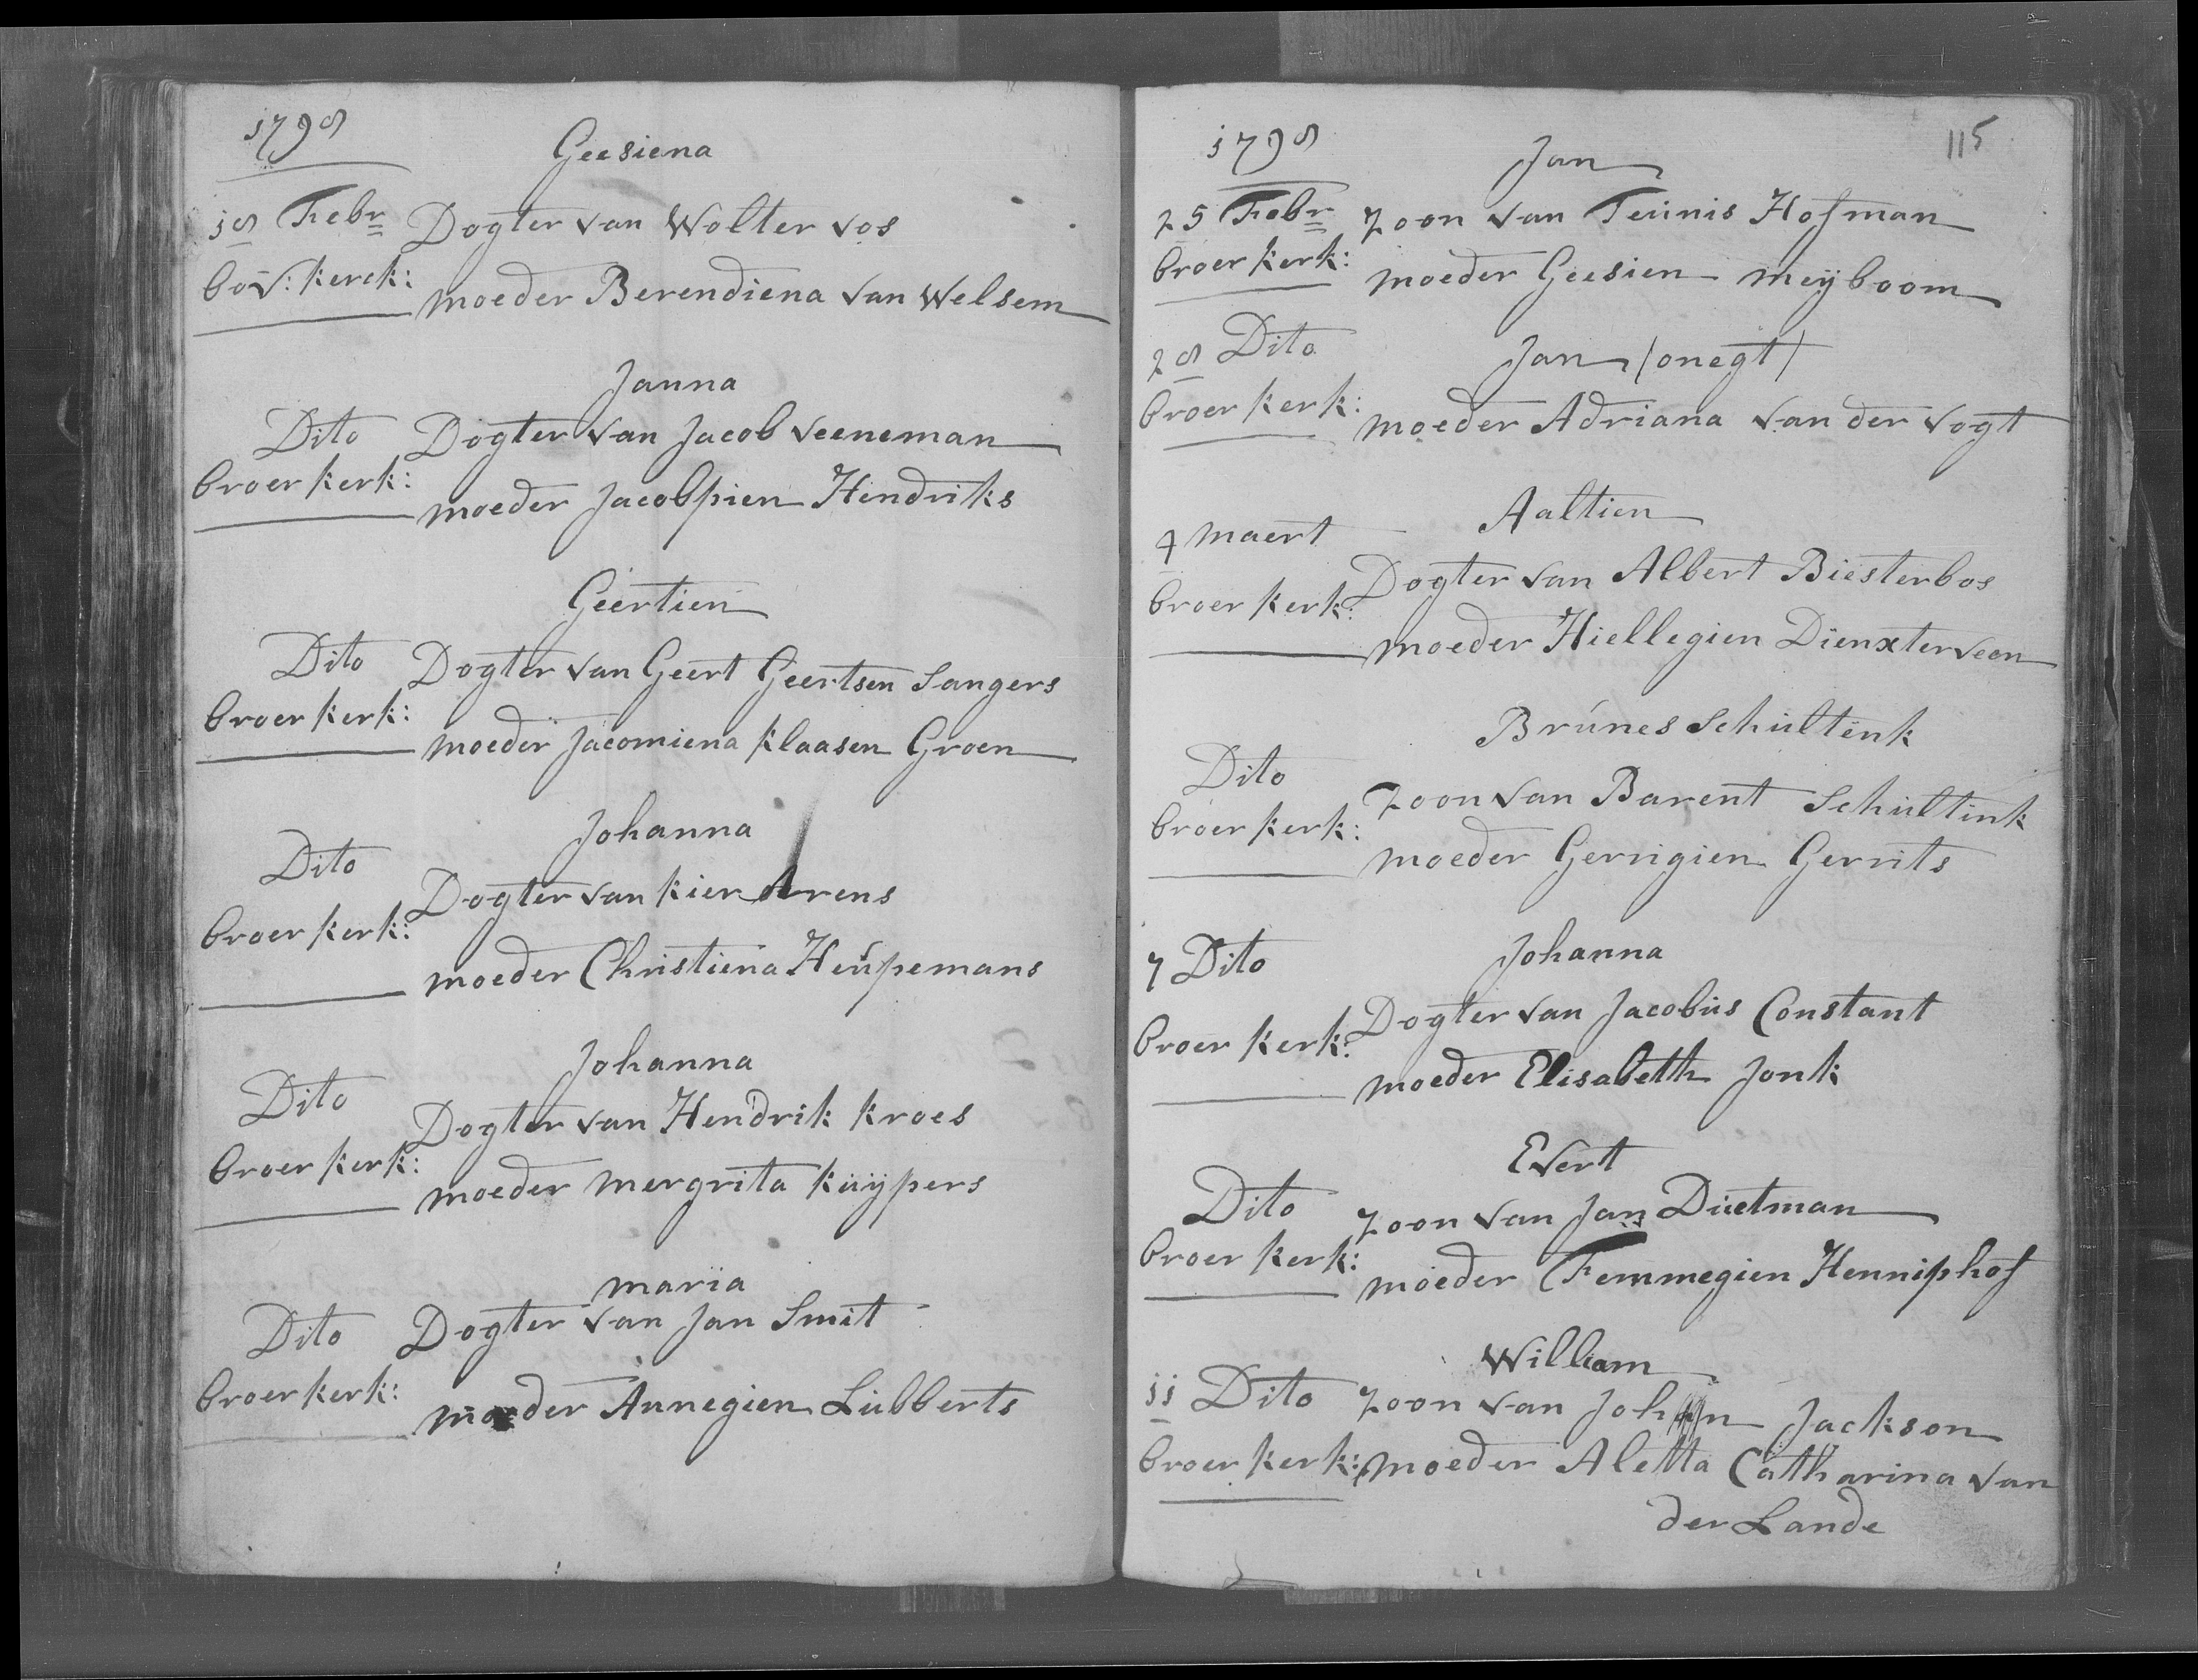 1798
Geesiena
18 Febr Dogter van Wolter vos
bov: kerck: moeder Berendiena van Welsem
Janna
Dito Dogter van Jacob veeneman
broer kerk: moeder Jacobpien Hendriks
Geertien
Dito Dogter van Geert Geertsen Sangers
broer kerk: moeder Jacomiena Klaasen Groen
Johanna
Dito Dogter van Kier Arens
broer kerk: moeder Christiena Heúpemans
Johanna
Dito Dogter van Hendrik Kroes
broer kerk: moeder mergrita Kuÿpers
maria
Dito Dogter van Jan Smit
broer kerk: moeder Annegien Lubberts
1798
115
Jan
25 Febr zoon van Teunis Hofman
broer kerk: moeder Geesien meÿboom
28 Dito Jan (onegt)
broer kerk: moeder Adriana van der vogt
Aaltien
4 maert Dogter van Albert Biesterbos
broer kerk: moeder Hiellegien Dienxterveen
Brúnes Schultink
Dito zoon van Barent Schultink
broer kerk: moeder Gerrigien Gerrits
Johanna
7 Dito Dogter van Jacobus Constant
broer kerk: moeder Elisabeth Jonk
Evert
Dito zoon van Jan Duetman
broer kerk: moeder Femmegien Henniphof
William
11 Dito zoon van John Jackson
broer kerk: moeder Aletta Catharina van
der Lande